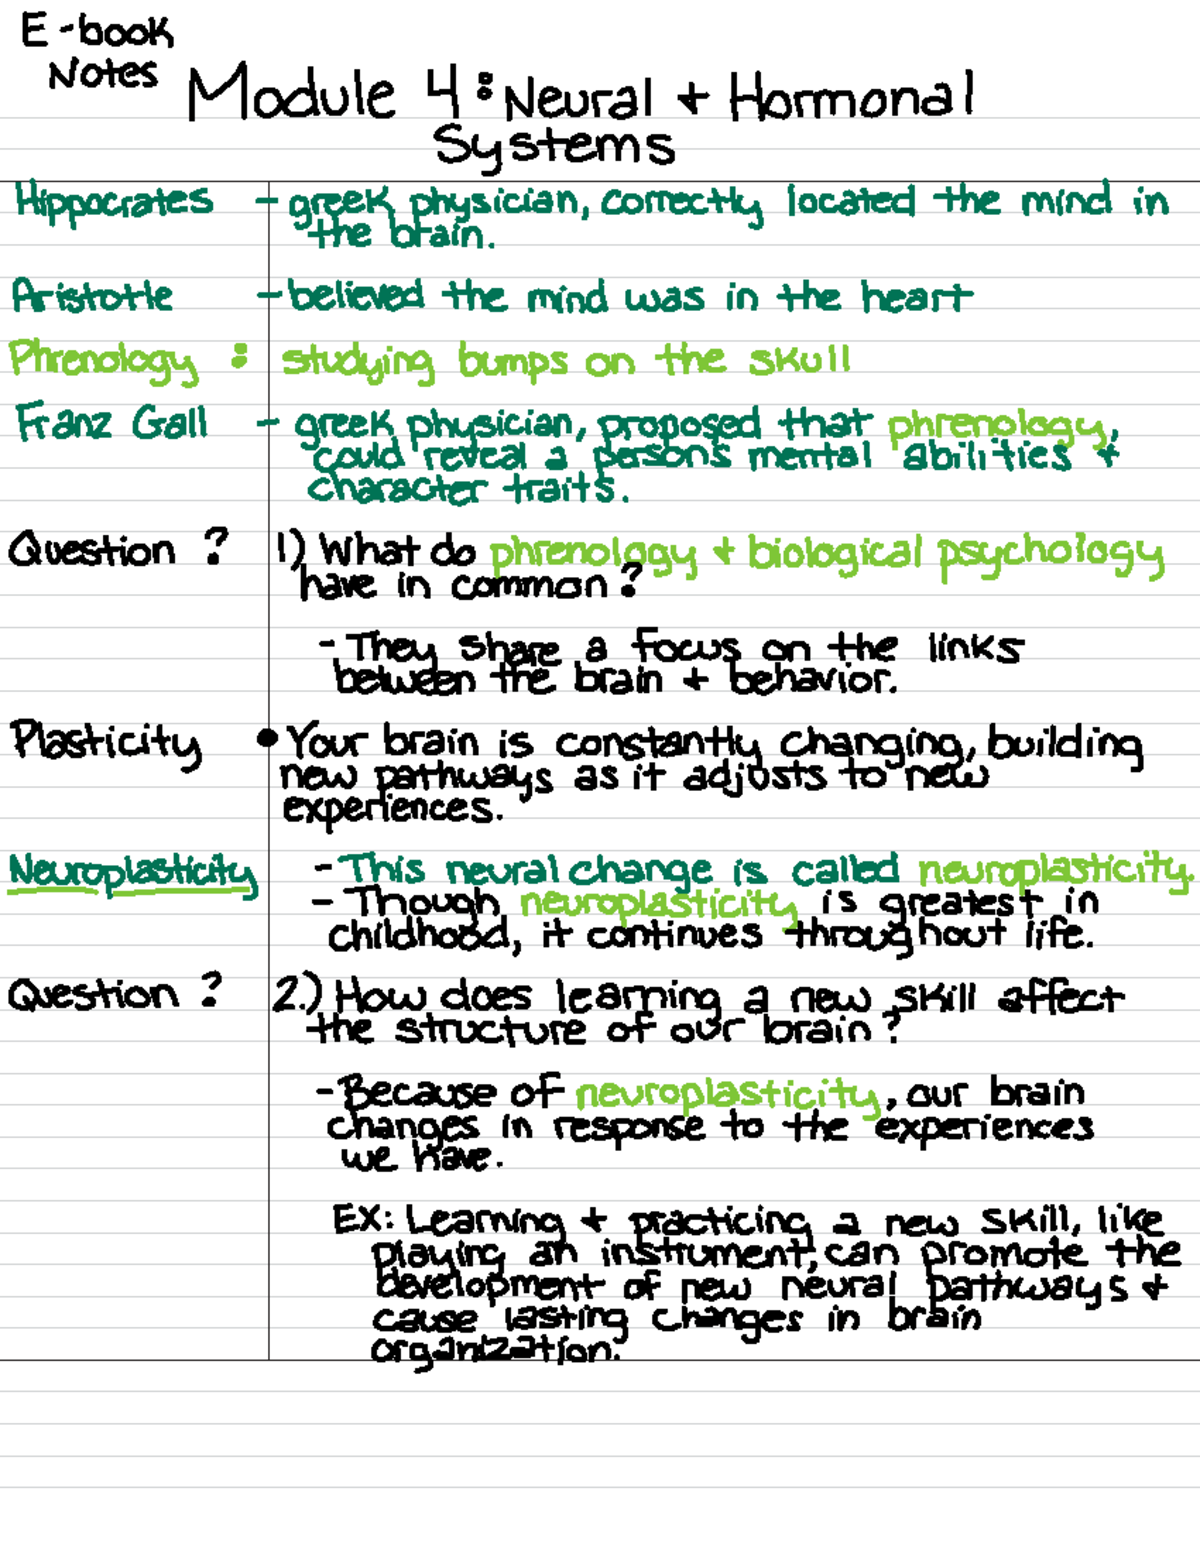 E-book
Notes
Module 4: Neural + Hormonal
Systems
Hippocrates - greek physician, correctly located the mind in
the brain.
Aristotle - believed the mind was in the heart
Phrenology : studying bumps on the skull
Franz Gall - greek physician, proposed that phrenology,
could reveal a persons mental abilities +
character traits.
Question ? 1) What do phrenology + biological psychology
have in common?
- They share a focus on the links
between the brain + behavior.
Plasticity • Your brain is constantly changing, building
new pathways as it adjusts to new
experiences.
Neuroplasticity - This neural change is called neuroplasticity.
- Though neuroplasticity is greatest in
childhood, it continues throughout life.
Question ? 2.) How does learning a new skill affect
the structure of our brain?
- Because of neuroplasticity, our brain
changes in response to the experiences
we have.
EX: Learning + practicing a new skill, like
playing an instrument, can promote the
development of new neural pathways +
cause lasting changes in brain
organization.